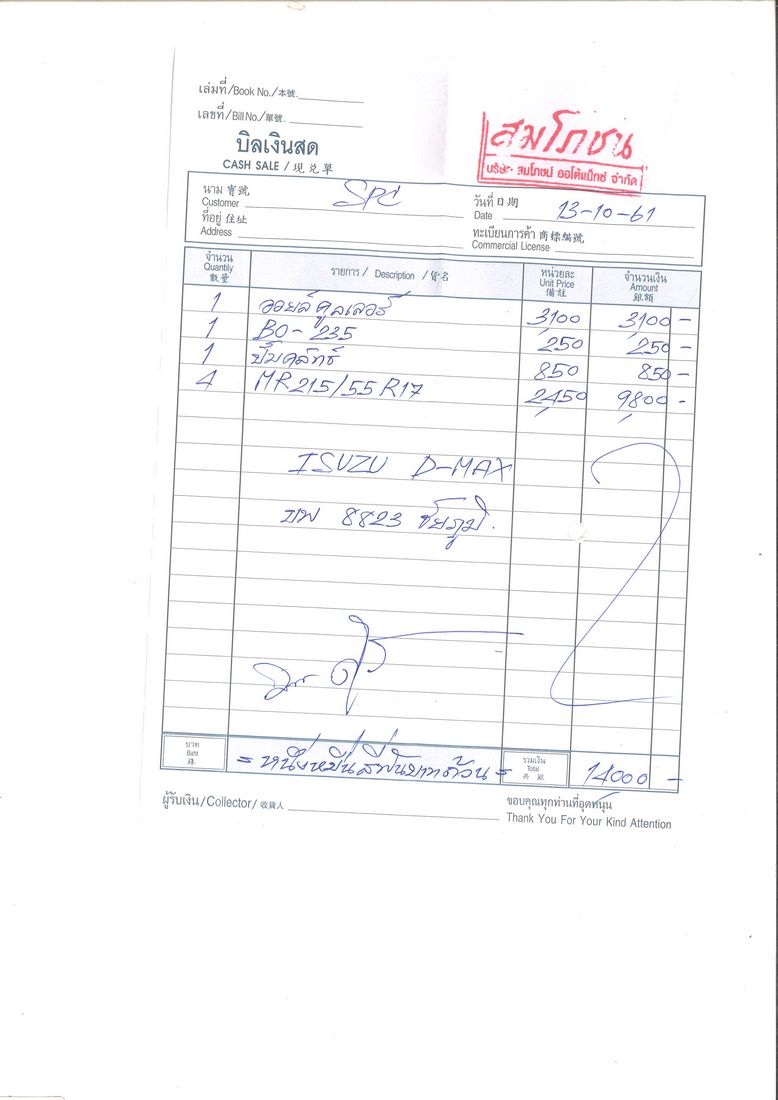 เล่มที่/Book No./本號.
เลขที่/Bill No./單號.
บิลเงินสด
CASH SALE / 现兑單
สมโภชน์
บริษัท สมโภชน์ ออโต้แม็กซ์ จำกัด
นาม 寳號
Customer SPC
วันที่ 日期
Date 13-10-61
ที่อยู่ 住址
Address
ทะเบียนการค้า 商標編號
Commercial License
จำนวน Quantity 數量
รายการ / Description / 貨名
หน่วยละ Unit Price 備註
จำนวนเงิน Amount 銀額
1 ออยล์คูลเลอร์ 3100 3100 -
1 BO-235 250 250 -
1 ปั๊มคลัทช์ 850 850 -
4 MR 215/55 R17 2450 9800 -
ISUZU D-MAX
8823 ชัยภูมิ.
บาท Baht 銖
= หนึ่งหมื่นสี่พันบาทถ้วน =
รวมเงิน Total 共銀
14000 -
ผู้รับเงิน/Collector/收貨人
ขอบคุณทุกท่านที่อุดหนุน
Thank You For Your Kind Attention